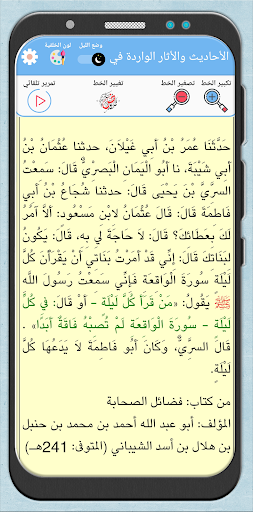 الأحاديث والأثار الواردة في
وضع الليل
لون الخلفية
تكبير الخط
تصغير الخط
تغيير الخط
تمرير تلقائي
حَدَّثَنَا عُمَرُ بْنُ أَبِي غَيْلَانَ، حدثنا عُثْمَانُ بْنُ
أَبِي شَيْبَةَ، نا أَبُو الْيَمَانِ الْبَصْرِيُّ قَالَ: سَمِعْتُ
السَّرِيَّ بْنَ يَحْيَى قَالَ: حدثنا شُجَاعُ بْنُ أَبِي
فَاطِمَةَ قَالَ: قَالَ عُثْمَانُ لابْنِ مَسْعُودٍ: أَلَا آمُرُ
لَكَ بِعَطَائِكَ؟ قَالَ: لَا حَاجَةَ لِي بِهِ، قَالَ: يَكُونُ
لِبَنَاتِكَ قَالَ: إِنِّي قَدْ أَمَرْتُ بَنَاتِي أَنْ يَقْرَأْنَ كُلَّ
لَيْلَةٍ سُورَةَ الْوَاقِعَةِ فَإِنِّي سَمِعْتُ رسول الله
ﷺ يَقُولُ: «مَنْ قَرَأَ كُلَّ لَيْلَةٍ - أَوْ قَالَ: فِي كُلِّ
لَيْلَةٍ - سُورَةَ الْوَاقِعَةِ لَمْ تُصِبْهُ فَاقَةٌ أَبَدًا» .
قَالَ السَّرِيُّ، وَكَانَ أَبُو فَاطِمَةَ لَا يَدَعُهَا كُلَّ
لَيْلَةٍ.
من كتاب: فضائل الصحابة
المؤلف: أبو عبد الله أحمد بن محمد بن حنبل
بن هلال بن أسد الشيباني (المتوفى: 241هـ)